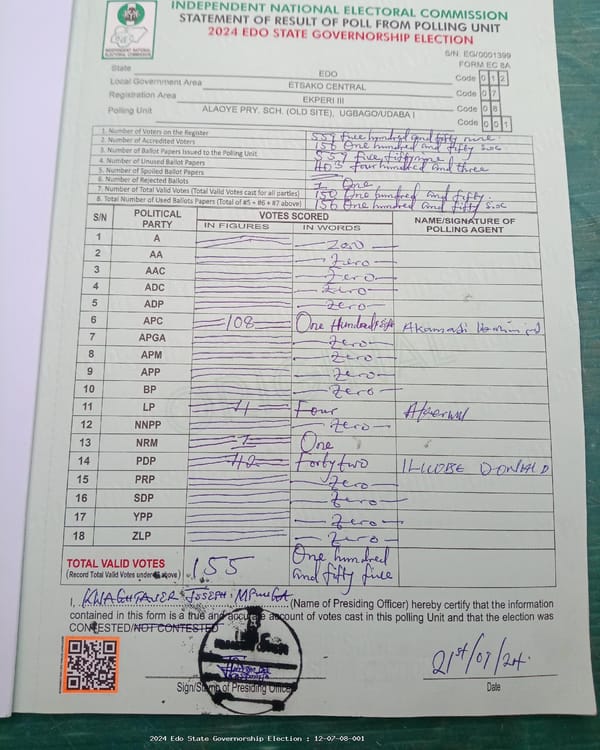 INDEPENDENT NATIONAL ELECTORAL COMMISSION
STATEMENT OF RESULT OF POLL FROM POLLING UNIT
2024 EDO STATE GOVERNORSHIP ELECTION
INDEPENDENT NATIONAL ELECTORAL COMMISSION
S/N: EG/0001399
FORM EC 8A
State EDO Code 0 1 2
Local Government Area ETSAKO CENTRAL Code 0 7
Registration Area EKPERI III Code 0 8
Polling Unit ALAOYE PRY. SCH. (OLD SITE), UGBAGO/UDABA I Code 0 0 1
1. Number of Voters on the Register 559 five hundred and fifty nine
2. Number of Accredited Voters 156 One hundred and fifty six
3. Number of Ballot Papers Issued to the Polling Unit 559 five fifty nine
4. Number of Unused Ballot Papers 403 four hundred and three
5. Number of Spoiled Ballot Papers
6. Number of Rejected Ballots 1 One
7. Number of Total Valid Votes (Total Valid Votes cast for all parties) 150 One hundred and fifty
8. Total Number of Used Ballots Papers (Total of #5 + #6 + #7 above) 156 One hundred and fifty six
S/N POLITICAL PARTY VOTES SCORED NAME/SIGNATURE OF POLLING AGENT
IN FIGURES IN WORDS
1 A Zero
2 AA Zero
3 AAC Zero
4 ADC Zero
5 ADP Zero
6 APC 108 One Hundred & eight
7 APGA Zero
8 APM Zero
9 APP Zero
10 BP Zero
11 LP 4 Four
12 NNPP Zero
13 NRM 1 One
14 PDP 42 Fortytwo ILUOBE DONALD
15 PRP Zero
16 SDP Zero
17 YPP Zero
18 ZLP Zero
TOTAL VALID VOTES 155 One hundred
(Record Total Valid Votes under above) and fifty five
I, JOSEPH (Name of Presiding Officer) hereby certify that the information
contained in this form is a true and accurate account of votes cast in this polling Unit and that the election was
CONTESTED/NOT CONTESTED
21st/09/24.
Sign/Stamp of Presiding Officer Date
2024 Edo State Governorship Election : 12-07-08-001